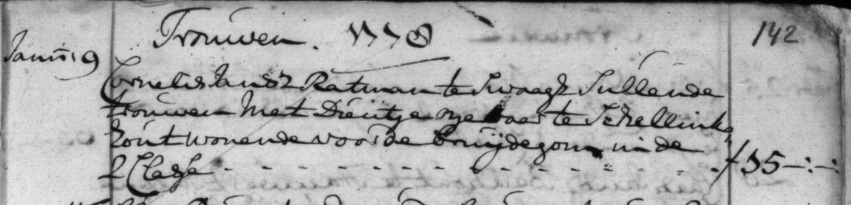 Trouwen. 1778
142
Janu: 9
Cornelis Jansz Ratman te Swaagh Sullende
trouwen Met Dieutje oye vaar te Schellink„
hout wonende voor de bruijdegom in de
2 Classe . . . . . . . . . . . ƒ 15-:-: